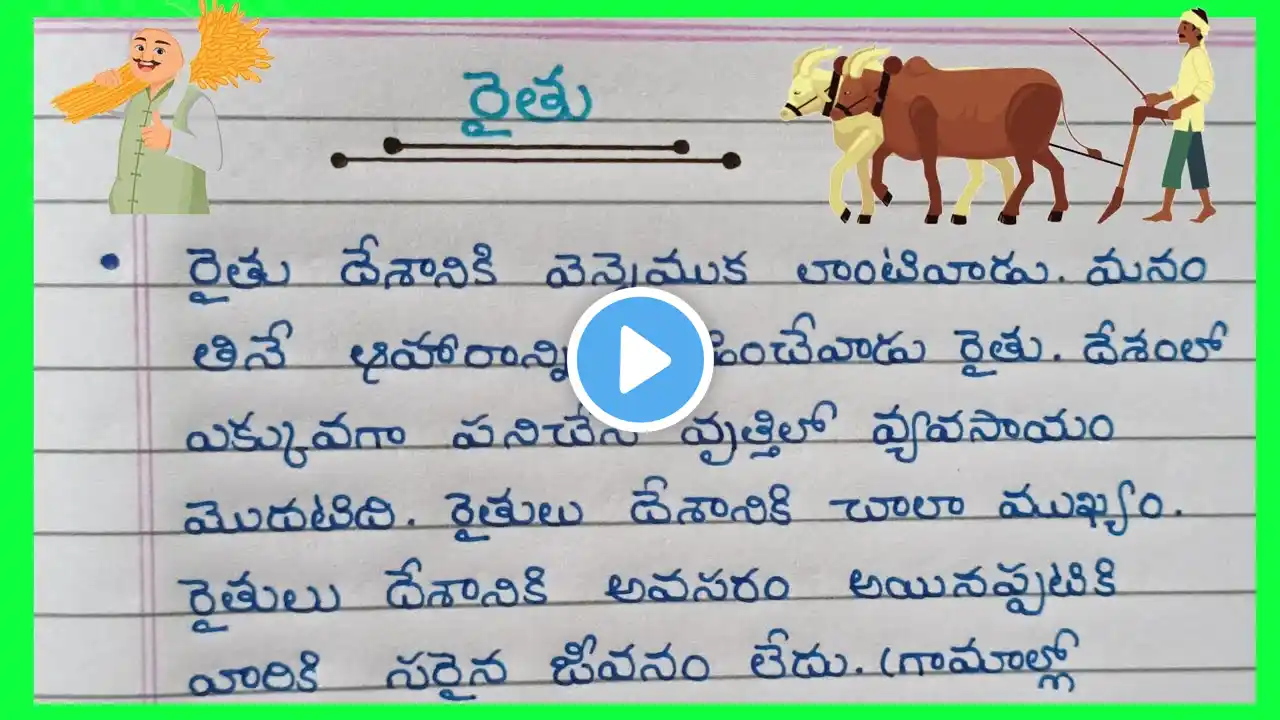 రైతు
రైతు దేశానికి వెన్నెముక లాంటివాడు. మనం
తినే ఆహారాన్ని రైతు. దేశంలో
ఎక్కువగా పనిచేసే వృత్తిలో వ్యవసాయం
మొదటిది. రైతులు దేశానికి చాలా ముఖ్యం.
రైతులు దేశానికి అవసరం అయినప్పటికి
వారికి సరైన జీవనం లేదు. గ్రామాల్లో